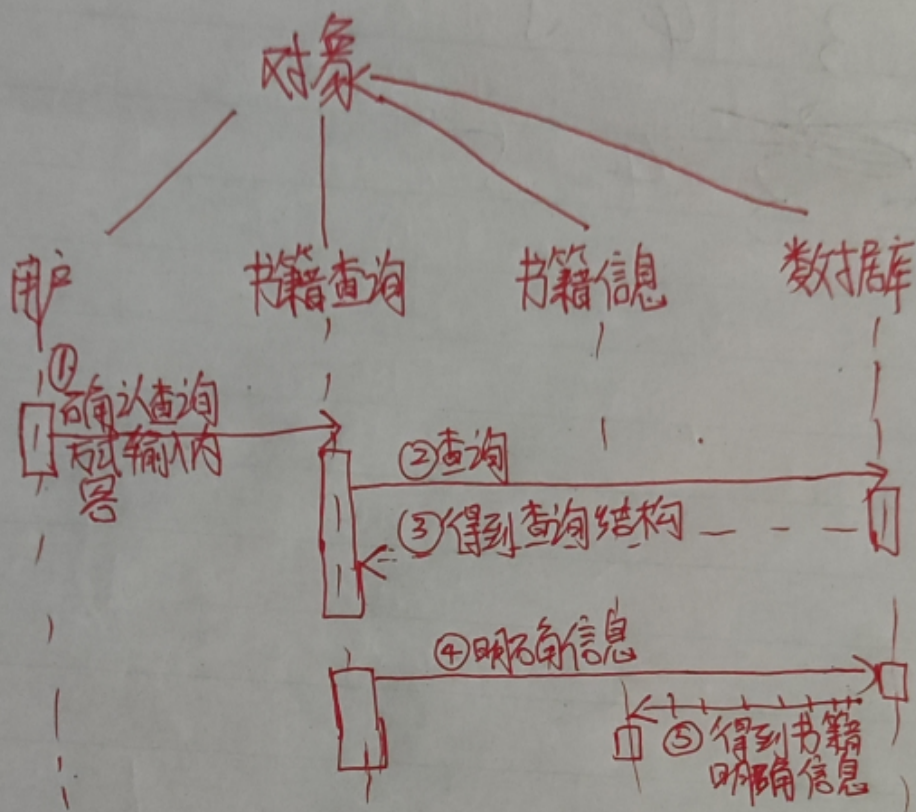 对象
用户
书籍查询
书籍信息
数据库
①
确认查询
方式输入内
容
②查询
③得到查询结构
④明确信息
⑤得到书籍
明确信息